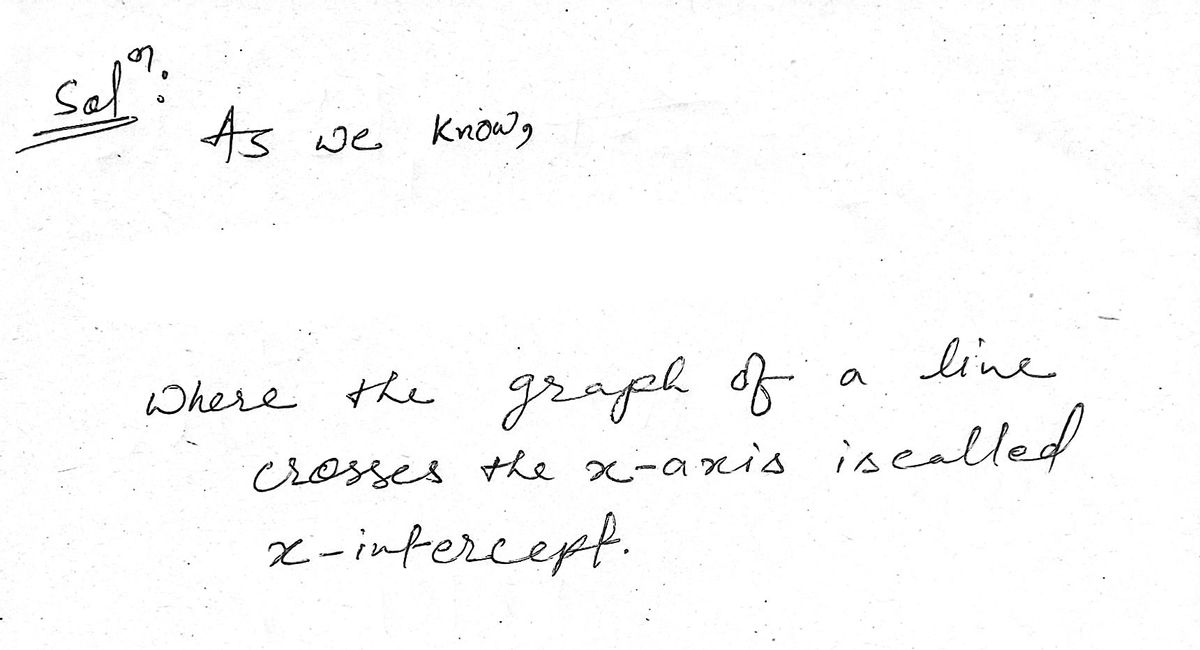 Solⁿ:
As we know,
where the graph of a line
crosses the x-axis is called
x-intercept.